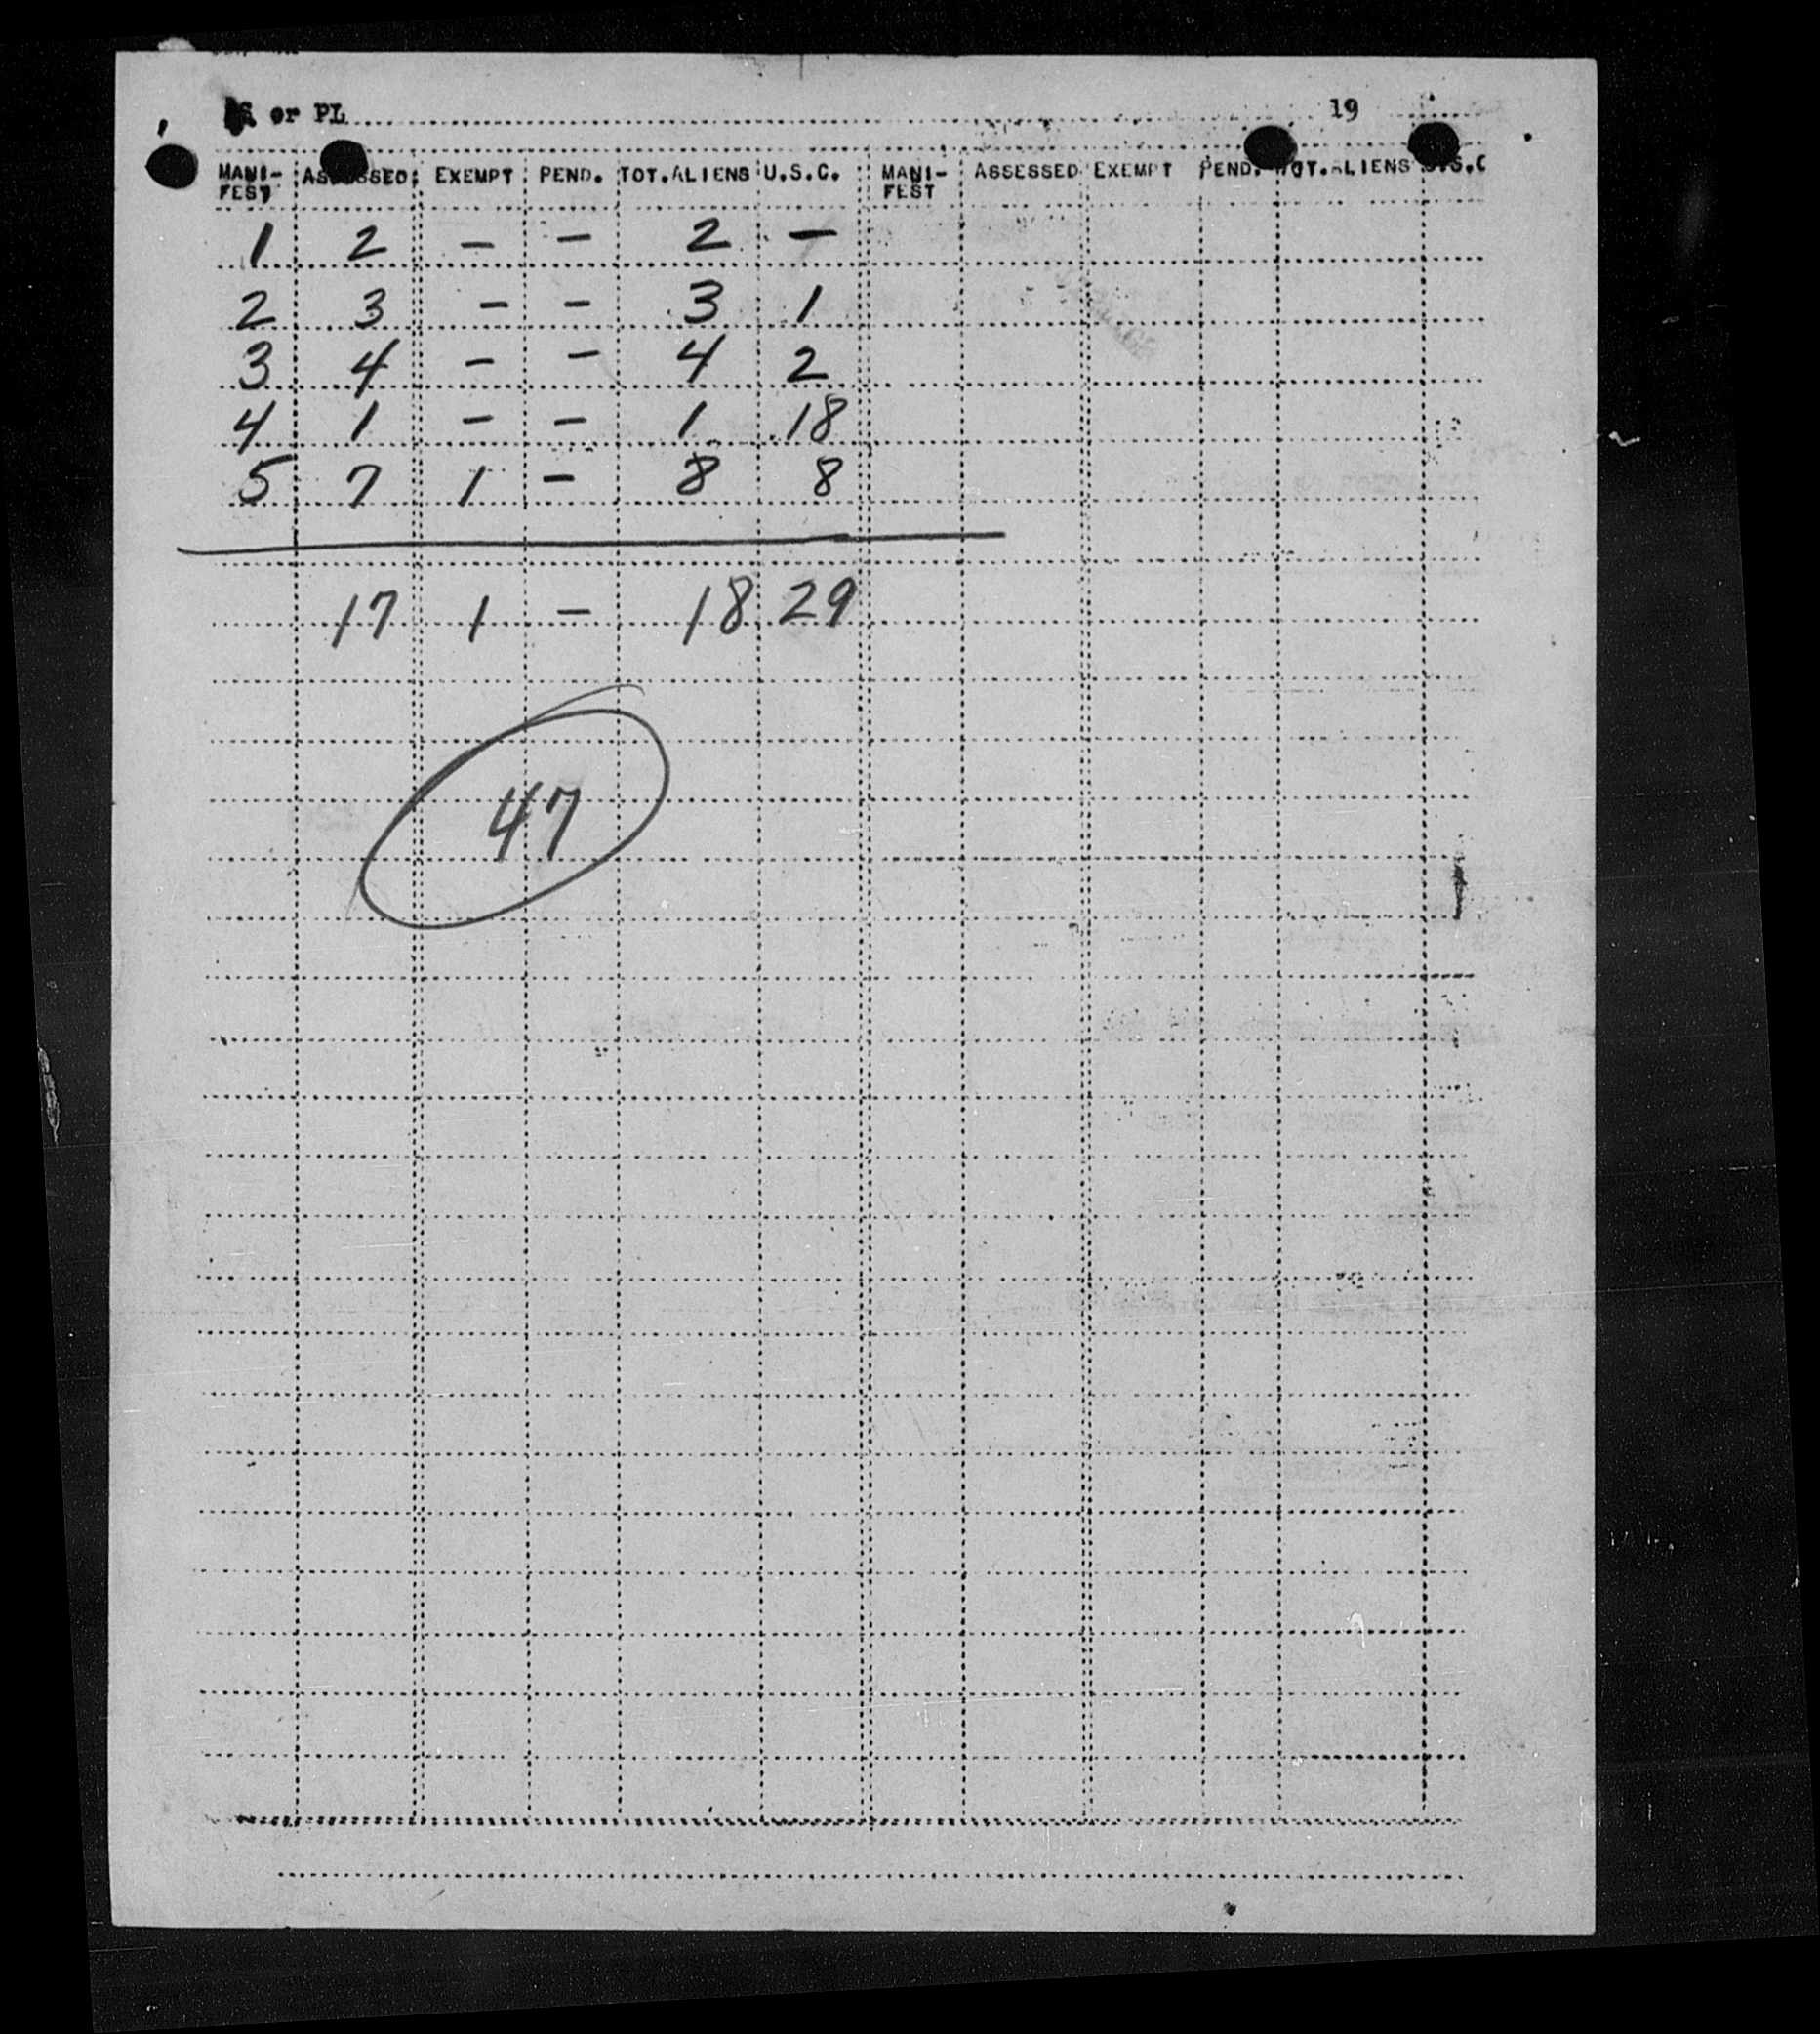 or PL 19
MANI-FEST ASSESSED EXEMPT PEND. TOT.ALIENS U.S.C. MANI-FEST ASSESSED EXEMPT PEND. TOT.ALIENS U.S.C
1 2 - - 2 -
2 3 - - 3 1
3 4 - - 4 2
4 1 - - 1 18
5 7 1 - 8 8
17 1 - 18 29
47